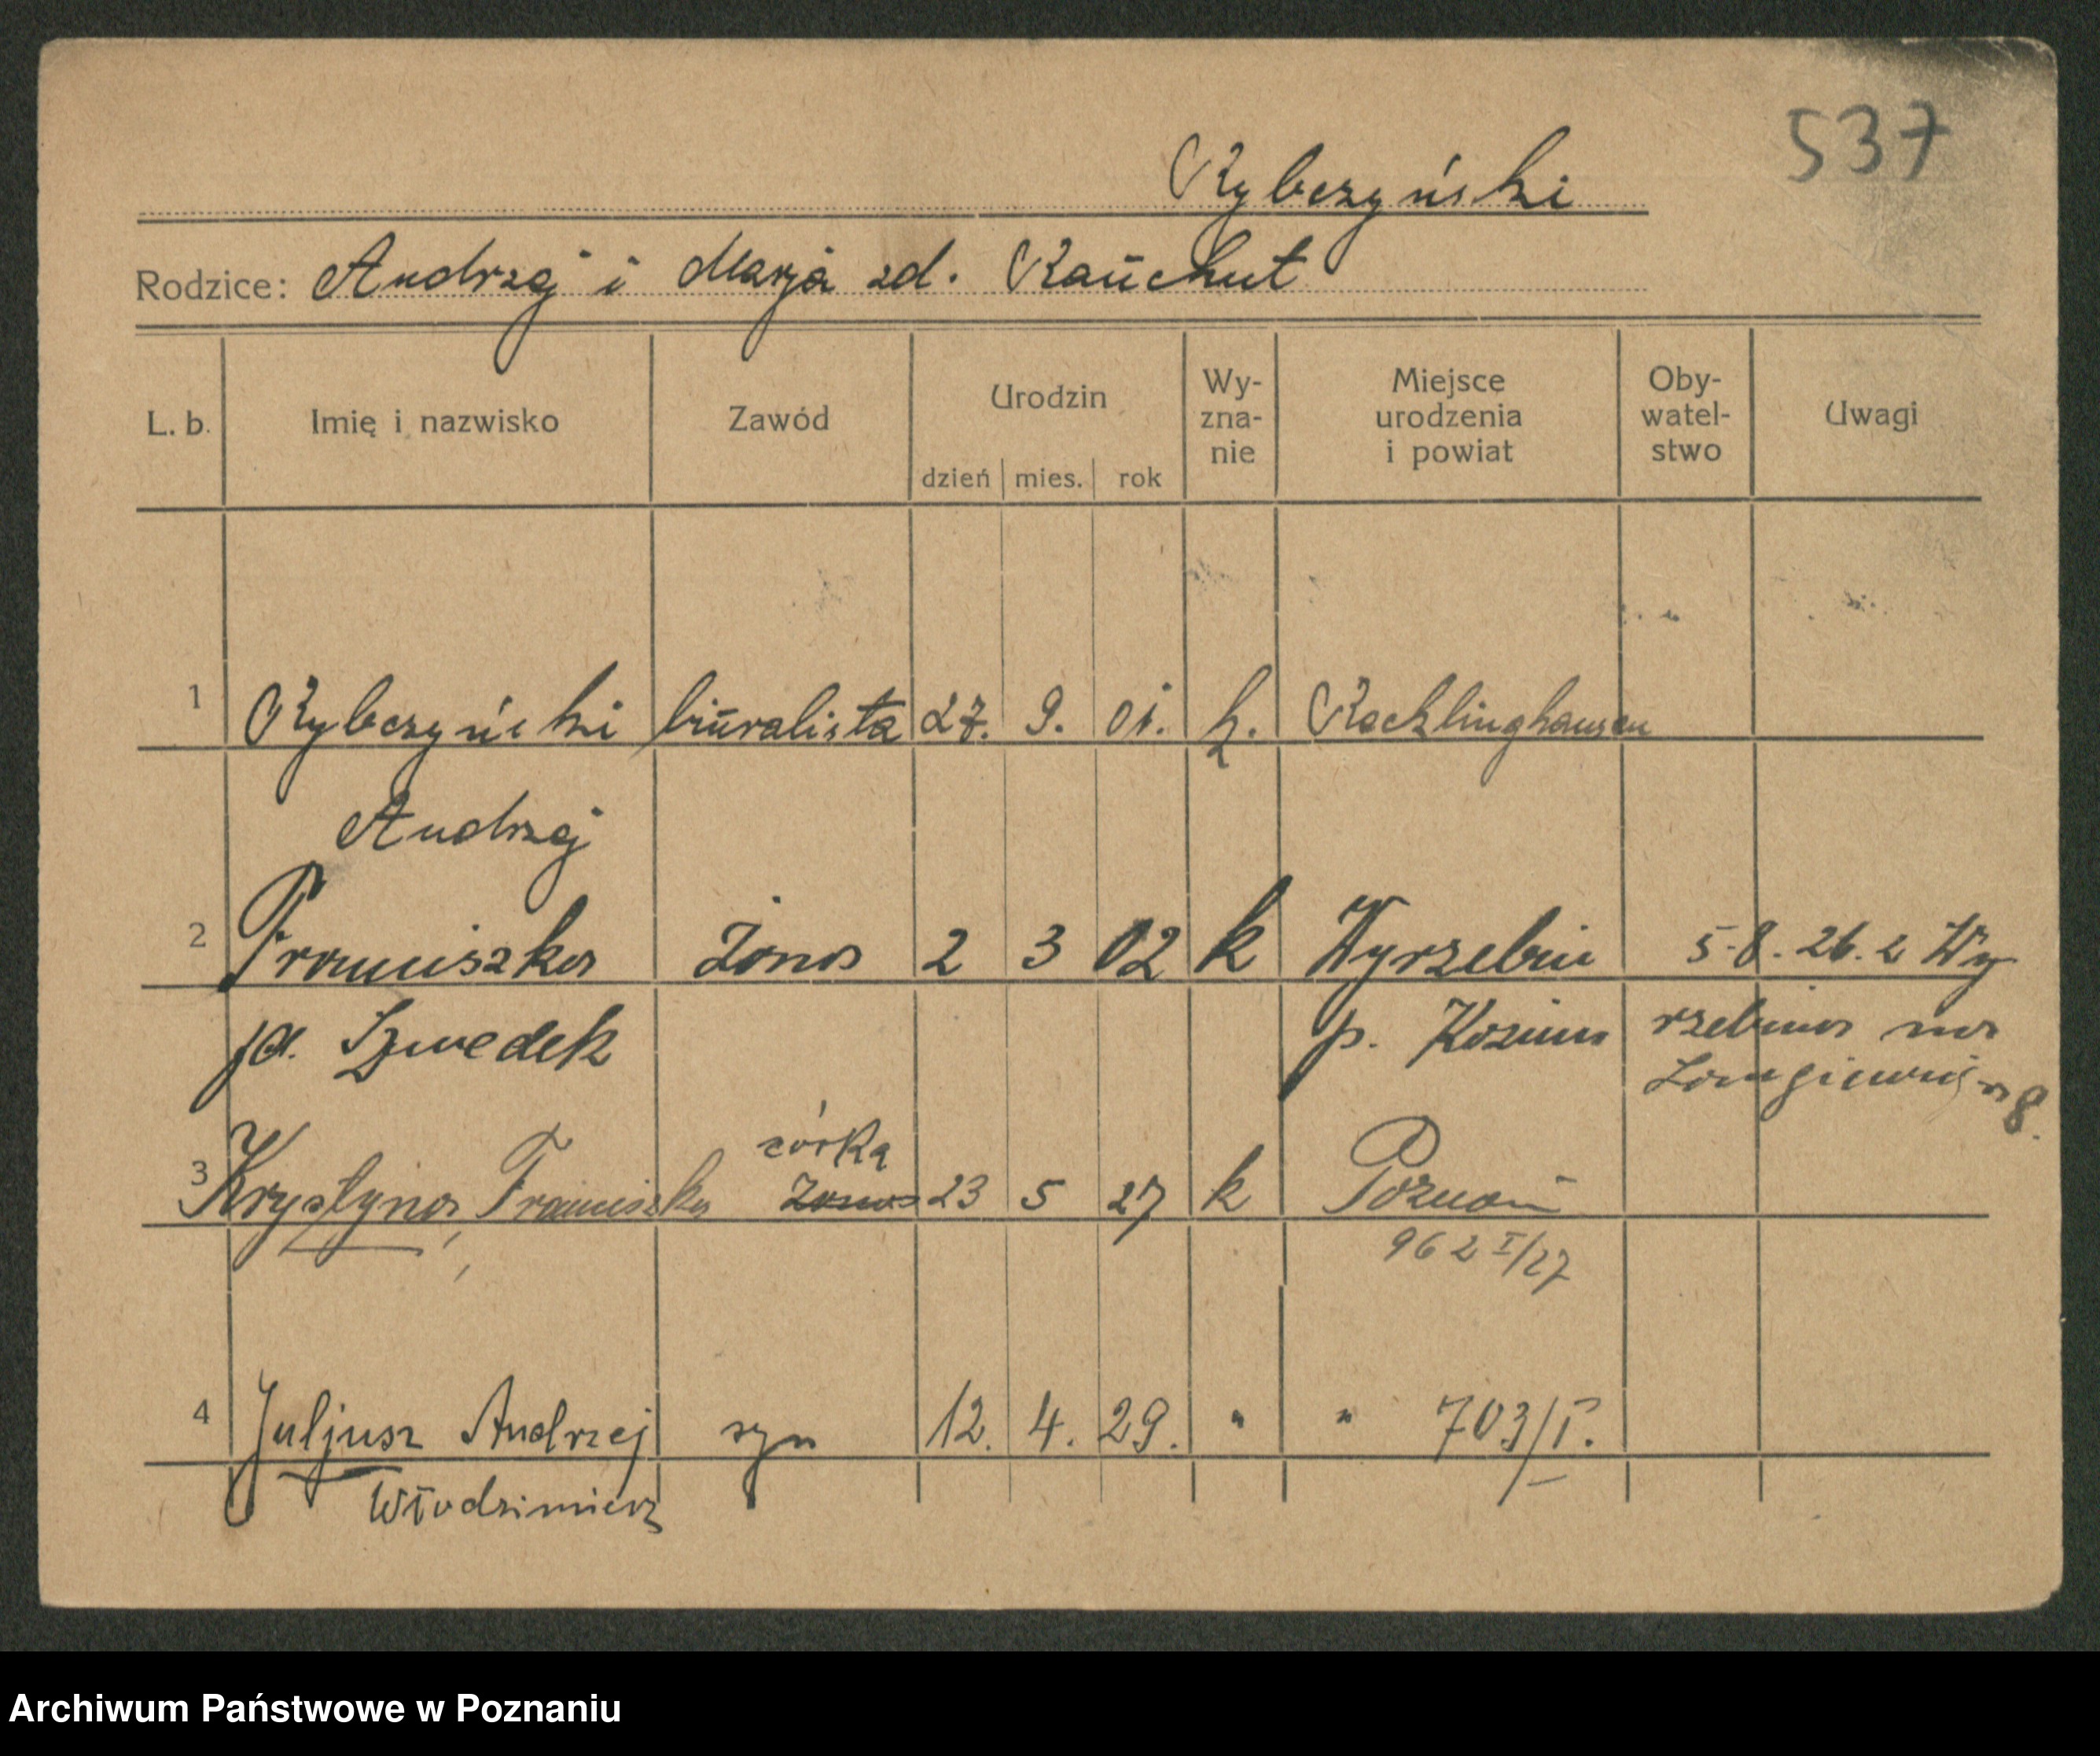 537
Rybczyński
Rodzice: Andrzej i Marja zd. Kaŭchut
L. b. Imię i nazwisko Zawód Urodzin dzień mies. rok Wy-zna-nie Miejsce urodzenia i powiat Oby-watel-stwo Uwagi
1 Rybczyński biŭralista 27. 9. 01. k. Recklinghausen
Andrzej
2 Franciszka żona 2 3 02 k Wyrzebin 5-8.26. z Wy
p. Koźmin rzebina na
8.
3 Krystyna, Franciszka córka żona 23 5 27 k Poznań
962 I/27
4 Juljusz Andrzej syn 12. 4. 29. " " 703/I.
Włodzimierz
Archiwum Państwowe w Poznaniu